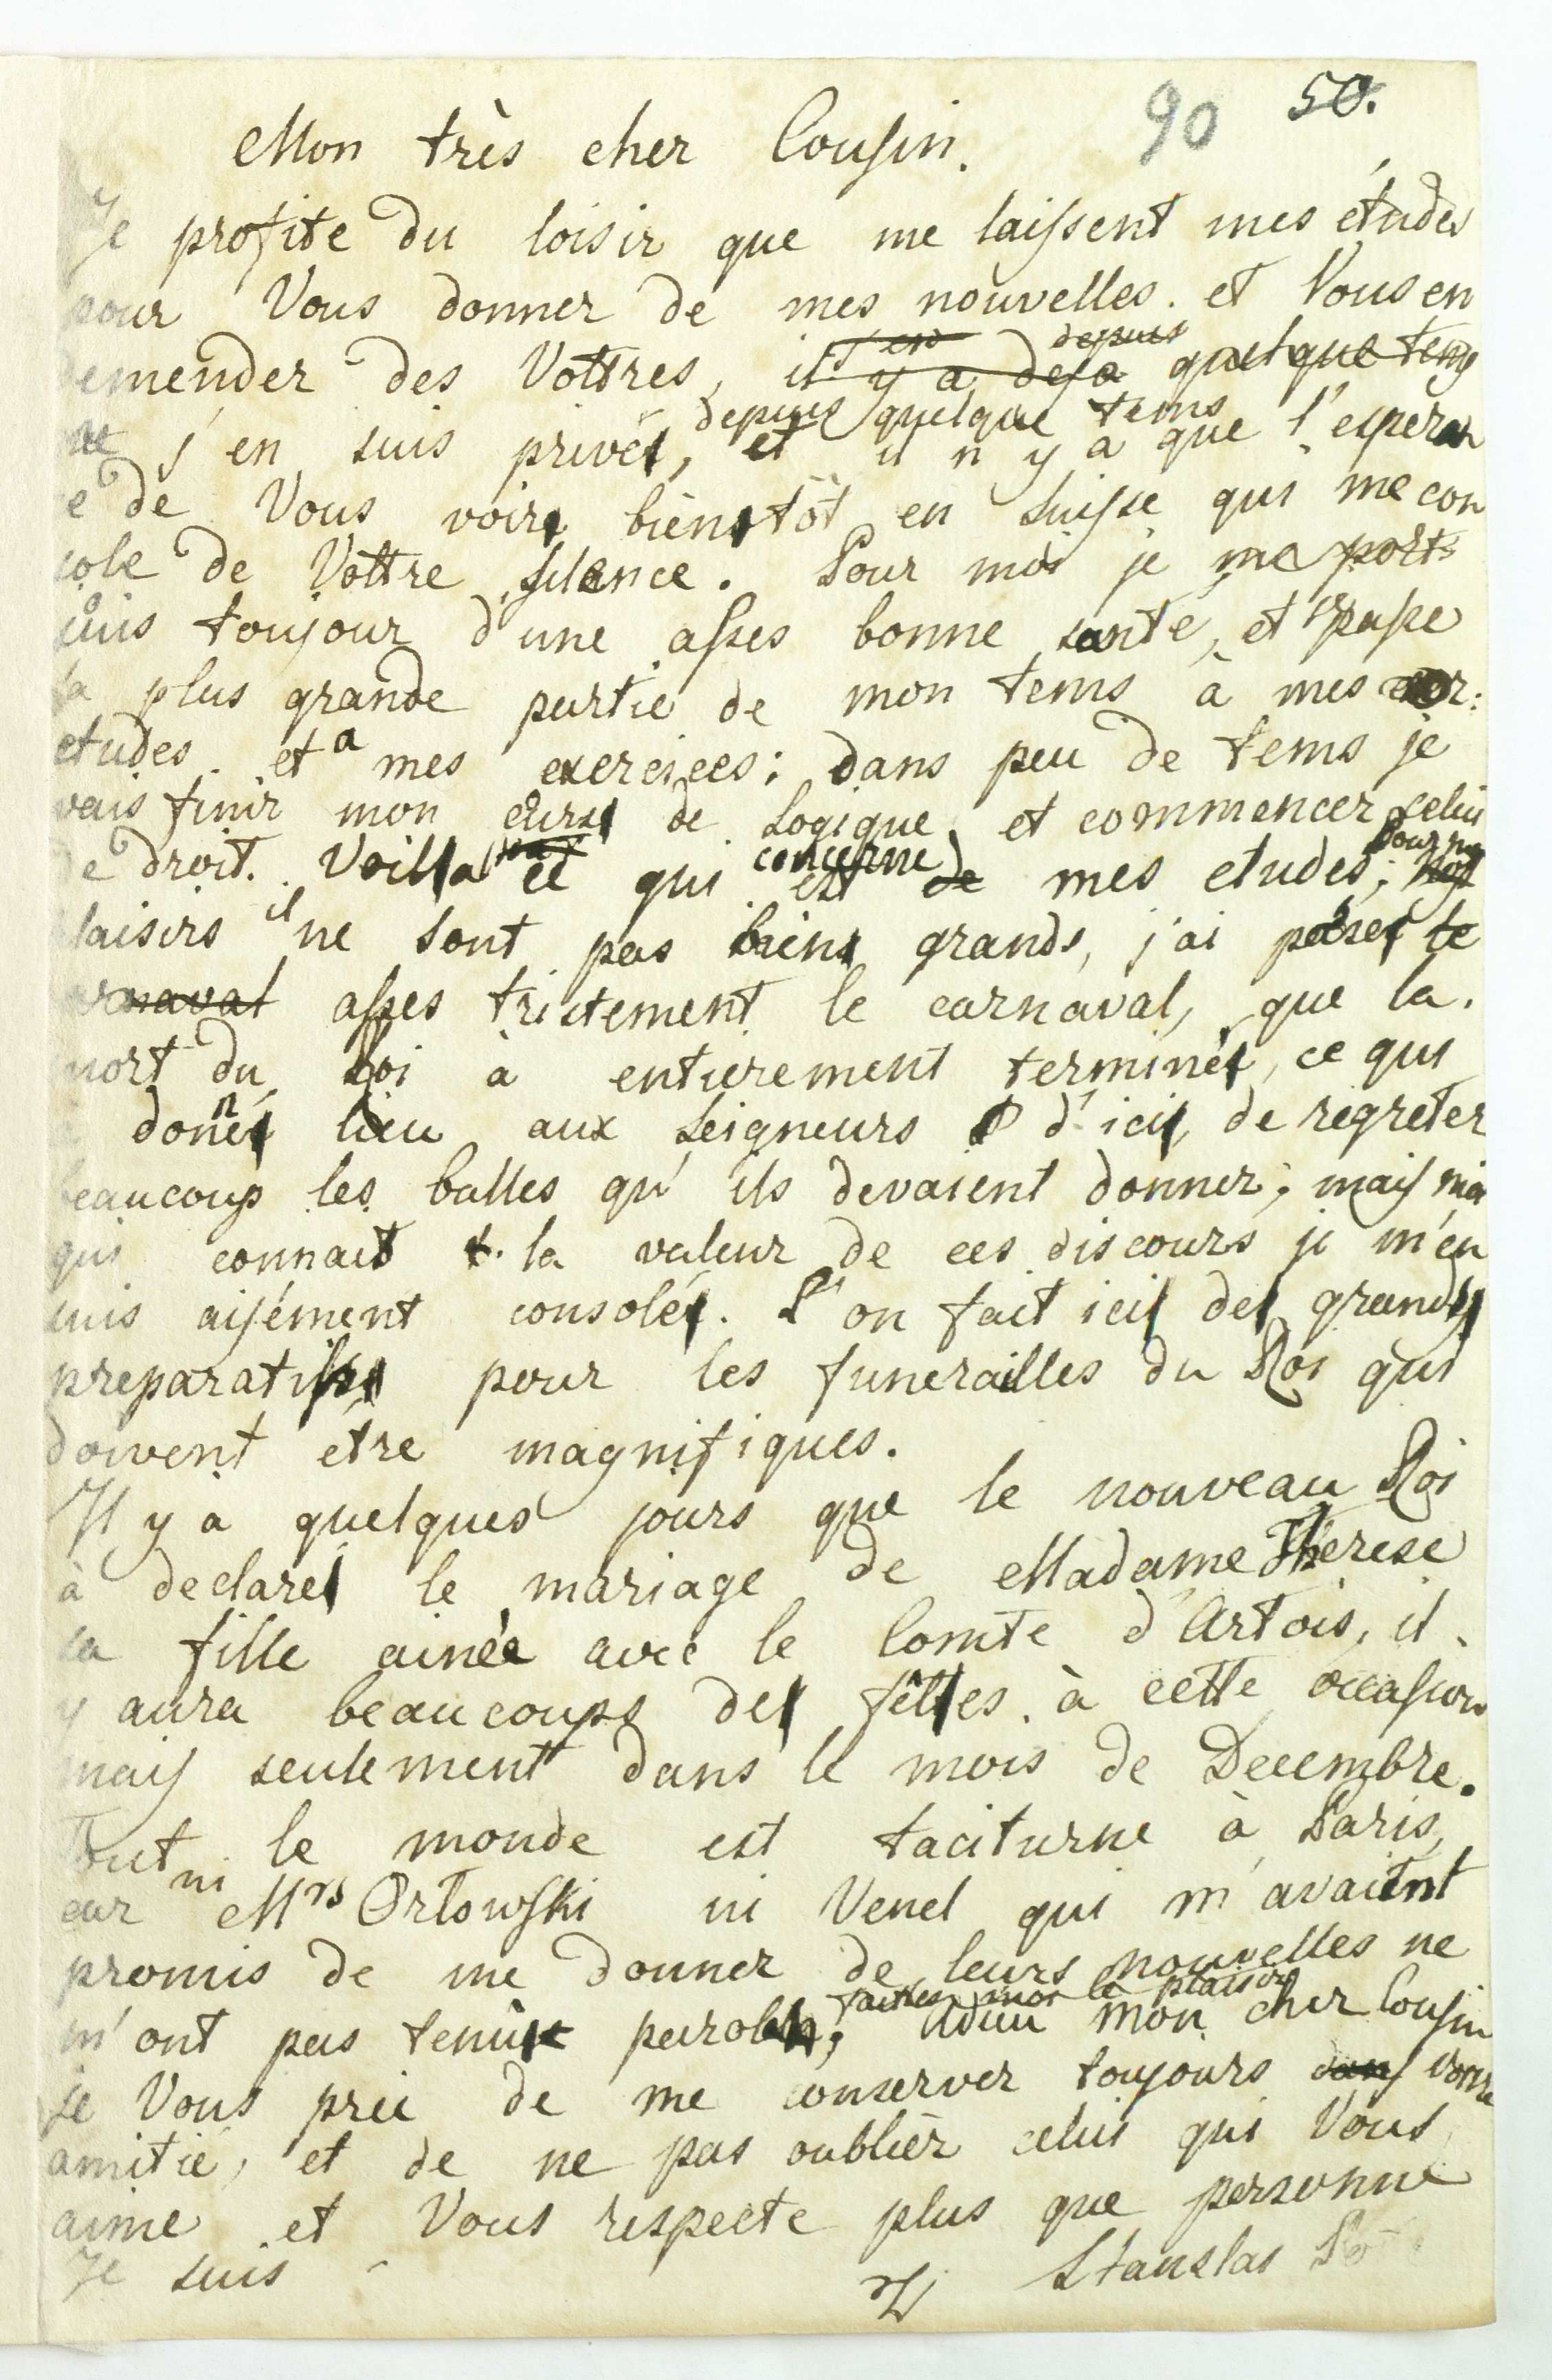 90 50.
Mon très cher Cousin.
Je profite du loisir que me laissent mes études
pour Vous donner de mes nouvelles. et Vous en
demender des Vottres, il y a deja depuis quelque tems
j'en suis privé, depuis quelque tems et il n'y a que l'esperan
ce de Vous voir bientôt en Suisse qui me con
sole de Vottre silance. Pour moi je me porte
suis toujour d'une asses bonne santé, et passe
la plus grande partie de mon tems à mes
etudes et a mes exercices; dans peu de tems je
vais finir mon cours de Logique, et commencer celui
de droit. Voilla ce qui concerne est de mes etudes; pour
plaisirs il ne sont pas bien grands, j'ai passé le
carnaval asses tristement le carnaval, que la
mort du Roi à entierement terminé, ce qui
a donné lieu aux Seigneurs d'ici, de regreter
beaucoup les balles qu'ils devaient donner; mais moi
qui connait la valeur de ces discours je m'en
suis aisément consolé. L'on fait ici de grands
preparatifs pour les funerailles du Roi qui
doivent être magnifiques.
Il y a quelques jours que le nouveau Roi
à declaré le mariage de Madame Therese
sa fille ainée avec le Comte d'Artois, il
y aura beaucoups de fêtes à cette occasion
mais seulement dans le mois de Decembre.
Tout le monde est taciturne à Paris,
car ni Mrs Orlowski ni Venel qui m'avaient
promis de me donner de leurs nouvelles ne
m'ont pas tenu parole; faites moi le plaisir Adieu mon cher Cousin
je Vous prie de me conserver toujours dans votre
amitié, et de ne pas oublièr celui qui Vous
aime et Vous respecte plus que personne
Je suis Stanslas